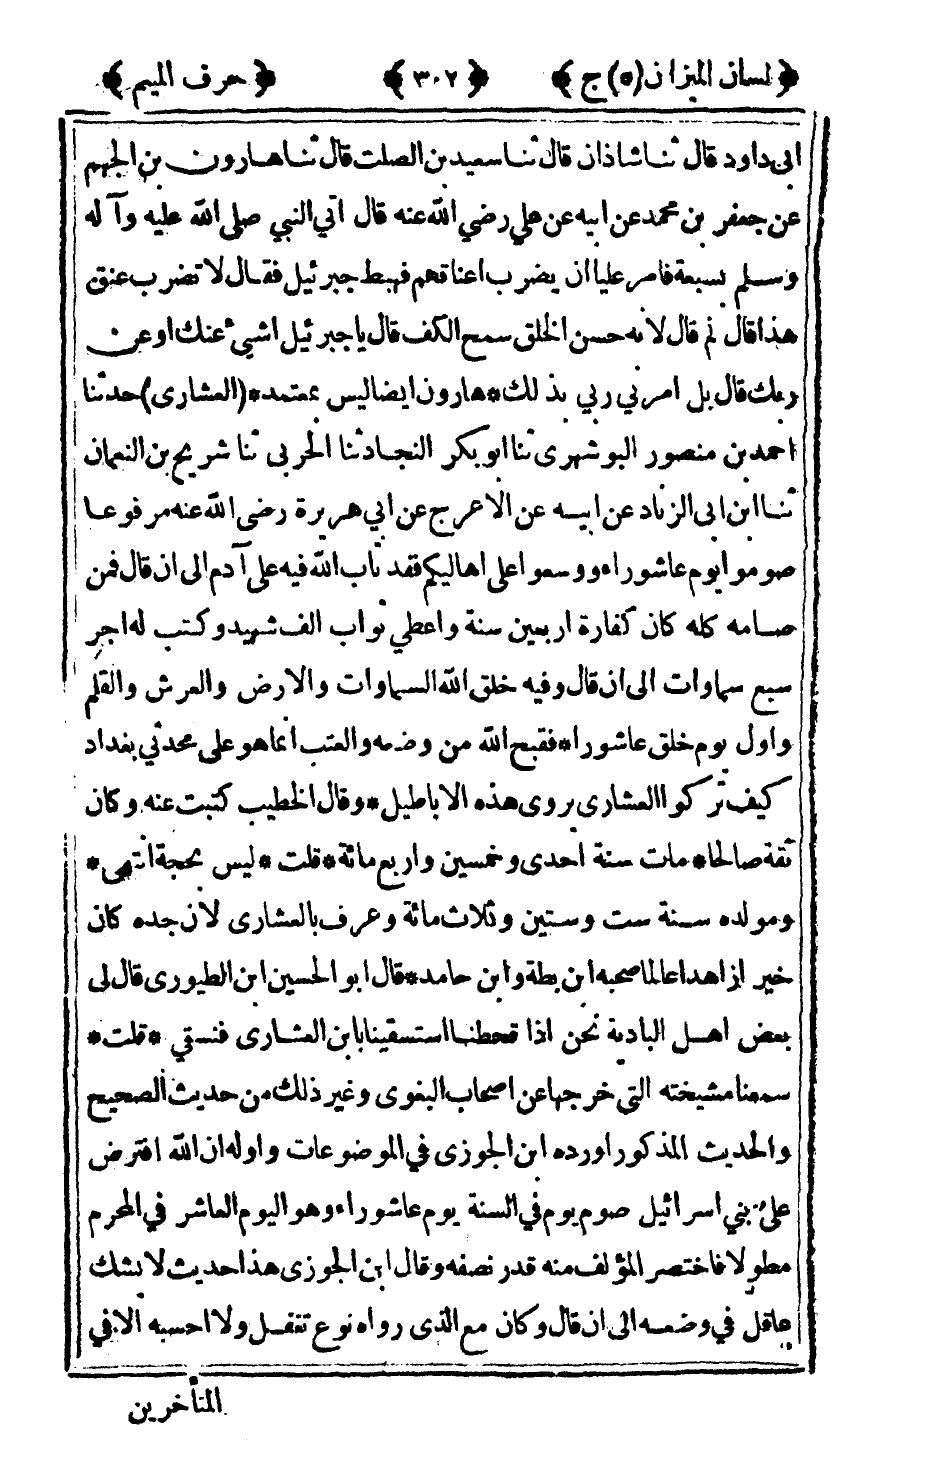 ﴿ لسان الميزان (٥) ج ﴾ ﴿ ٣٠٢ ﴾ ﴿ حرف الميم ﴾
ابى داود قال ثنا شاذان قال ثنا سعيد بن الصلت قال ثنا هارون بن الجهم
عن جعفر بن محمد عن ابيه عن علي رضي الله عنه قال اتي النبي صلى الله عليه وآله
وسلم بسبعة فامر عليا ان يضرب اعناقهم فهبط جبرئيل فقال لا تضرب عنق
هذا قال لم قال لانه حسن الخلق سمح الكف قال يا جبرئيل اشيئ عنك او عن
ربك قال بل امرني ربي بذلك * هارون ايضا ليس بمعتمد * (العشارى) حدثنا
احمد بن منصور البوشهرى ثنا ابو بكر النجاد ثنا الحربى ثنا شريح بن النعمان
ثنا ابن ابى الزناد عن ابيه عن الاعرج عن ابي هريرة رضى الله عنه مرفوعا
صوموا يوم عاشوراء ووسعوا على اهاليكم فقد تاب الله فيه على آدم الى ان قال فمن
صامه كله كان كفارة اربعين سنة واعطي ثواب الف شهيد وكتب له اجر
سبع سماوات الى ان قال وفيه خلق الله السماوات والارض والعرش والقلم
واول يوم خلق عاشورا * فقبح الله من وضعه والعتب انما هو على محدثي بغداد
كيف تركوا العشارى يروى هذه الاباطيل * وقال الخطيب كتبت عنه وكان
ثقة صالحا * مات سنة احدى وخمسين واربع مائة * قلت * ليس بحجة انتهى *
ومولده سنة ست وستين وثلاث مائة وعرف بالعشارى لان جده كان
خيرا زاهدا عالما صحبه ابن بطة وابن حامد * قال ابو الحسين ابن الطيورى قال لى
بعض اهل البادية نحن اذا قحطنا استسقينا بابن العشارى فنسقي * قلت *
سمعنا مشيخته التي خرجها عن اصحاب البغوى وغير ذلك من حديث الصحيح
والحديث المذكور اورده ابن الجوزى في الموضوعات واوله ان الله افترض
على بني اسرائيل صوم يوم في السنة يوم عاشوراء وهو اليوم العاشر في المحرم
مطولا فاختصر المؤلف منه قدر نصفه وقال ابن الجوزى هذا حديث لا يشك
عاقل في وضعه الى ان قال وكان مع الذى رواه نوع تغفل ولا احسبه الا في
المتأخرين